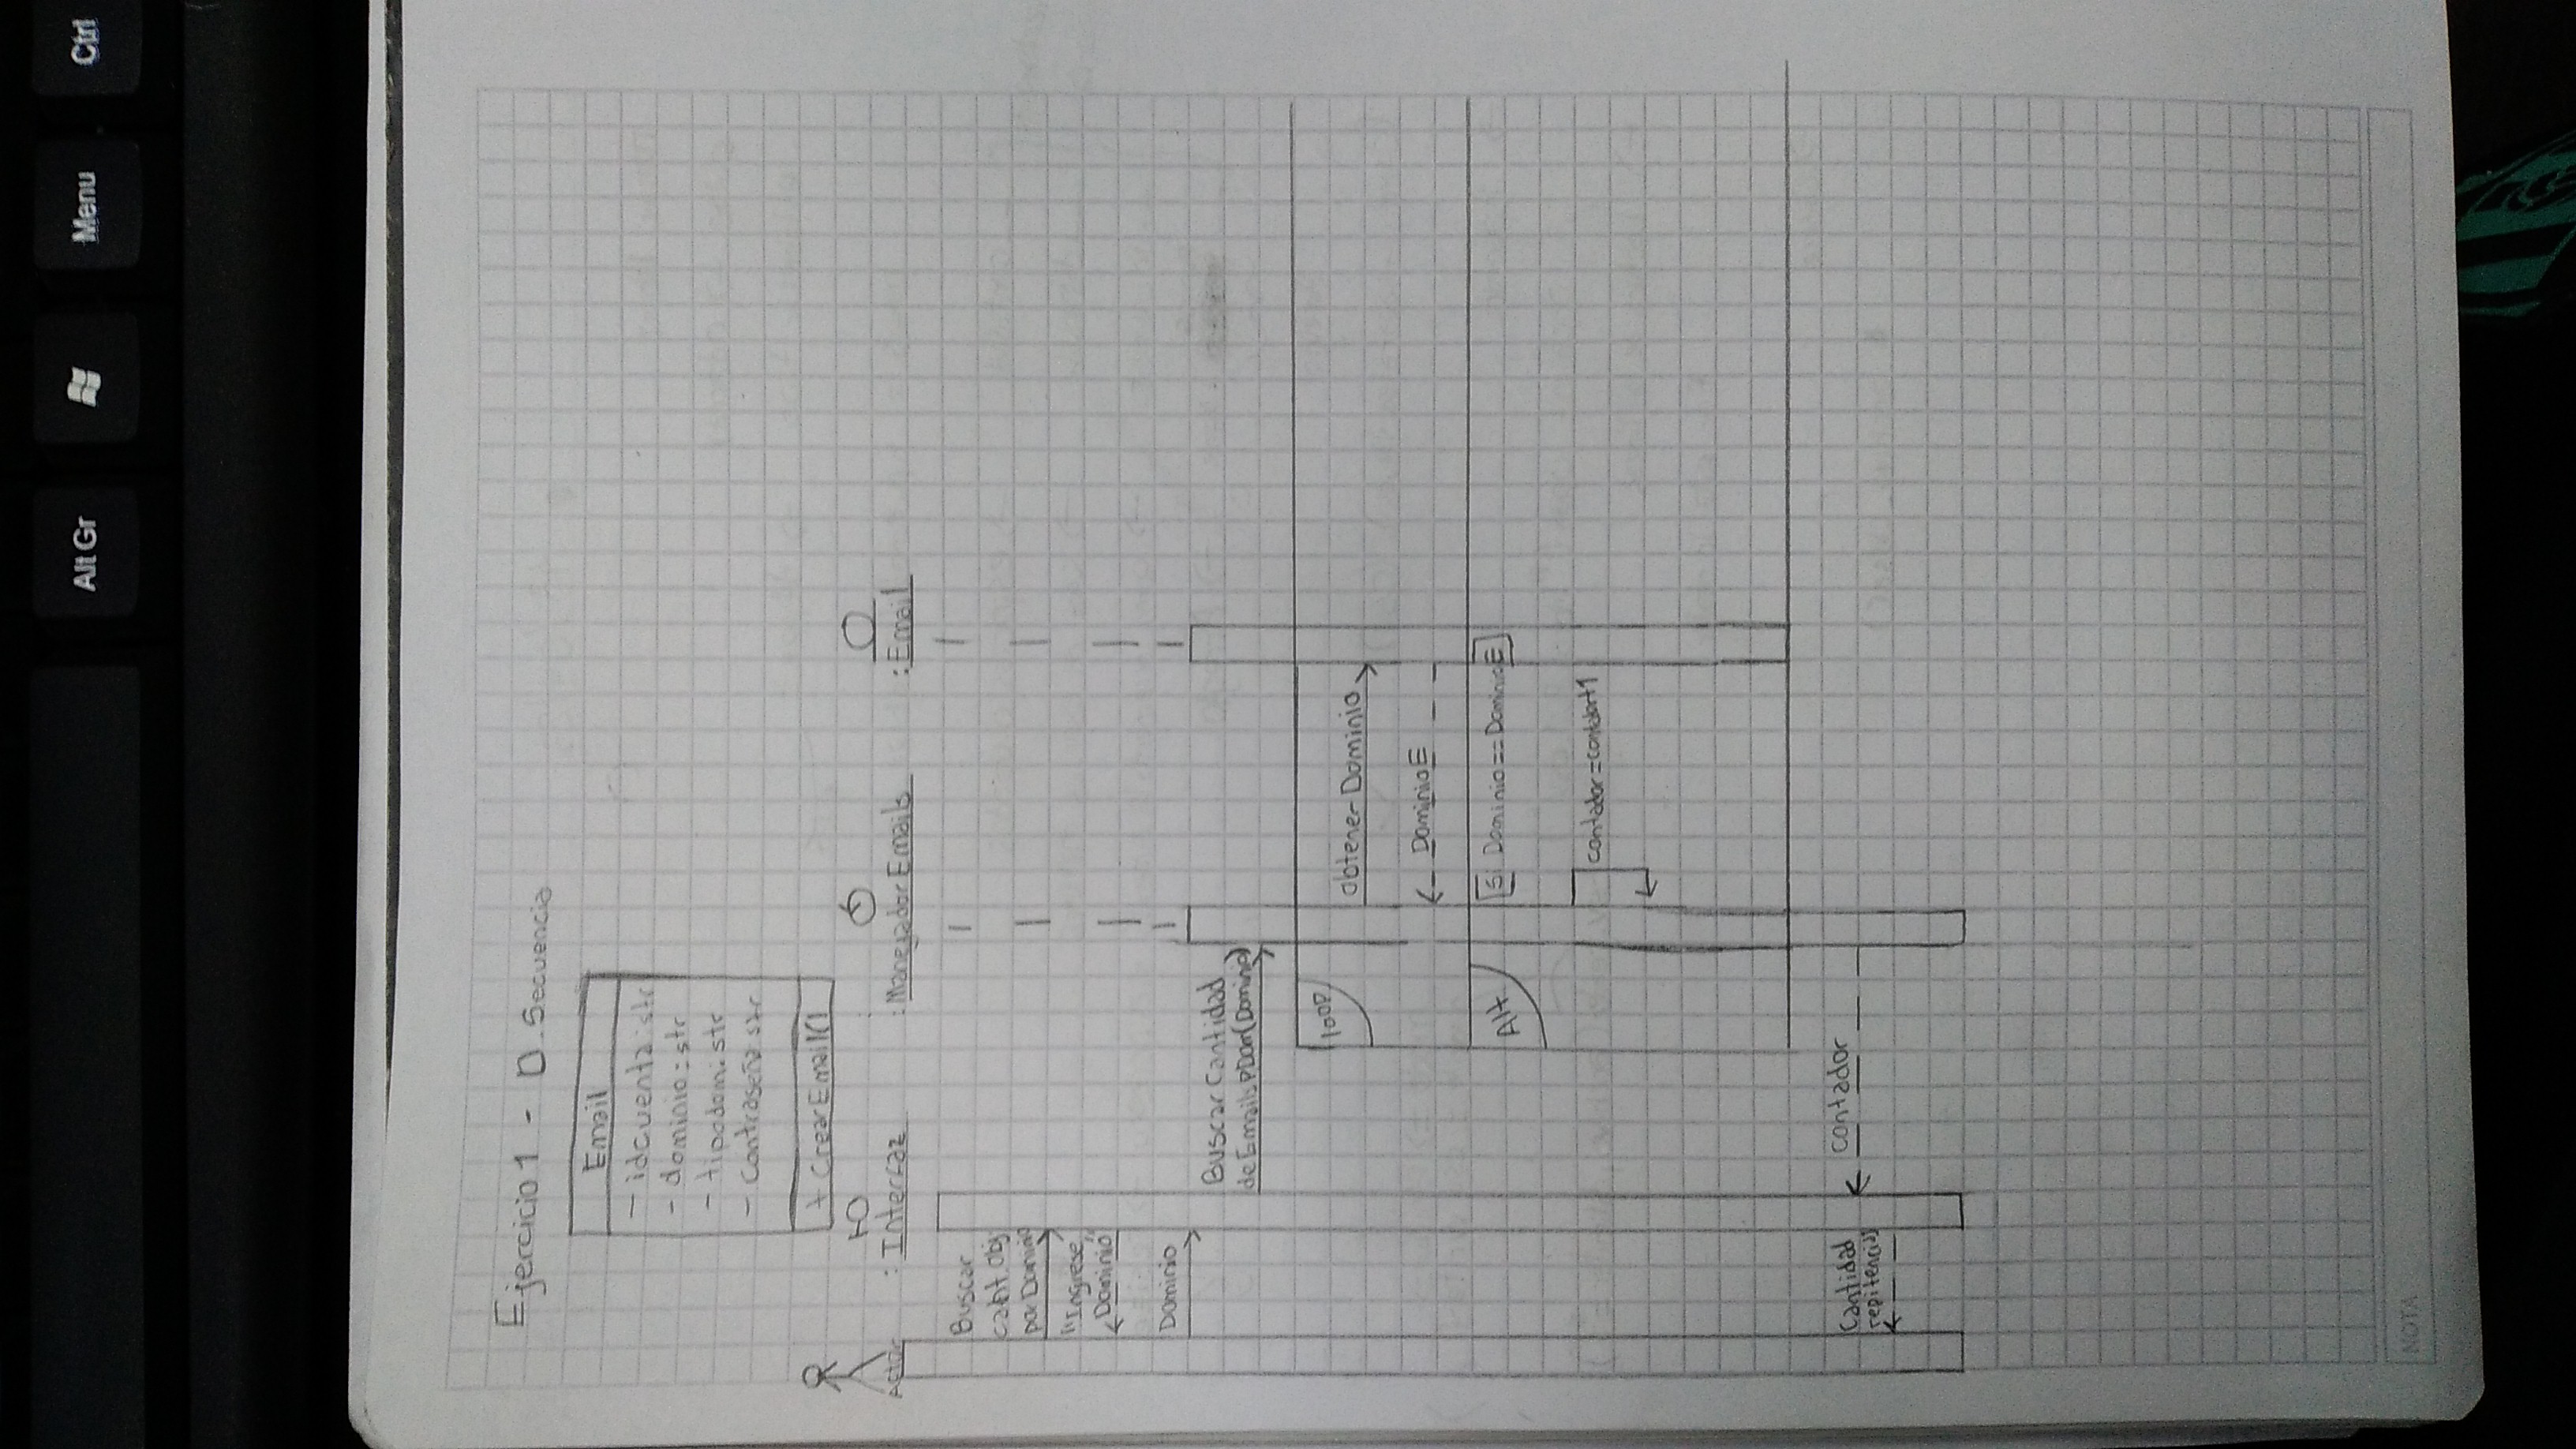 Alt Gr
Menu
Ctrl
Ejercicio 1 - D. Secuencia
Email
- idcuenta: str
- dominio: str
- tipodom: str
- contraseña: str
+ CrearEmail()
Actor
: Interfaz
: Manejador Emails
: Email
Buscar
cant. Obj
por Dominio
"Ingrese
Dominio"
Dominio
Buscar Cantidad
de Emails PDom(Dominio)
loop
obtener Dominio
DominioE
Alt
[Si Dominio==DominioE]
contador=
contador
Cantidad
repitencias
NOTA